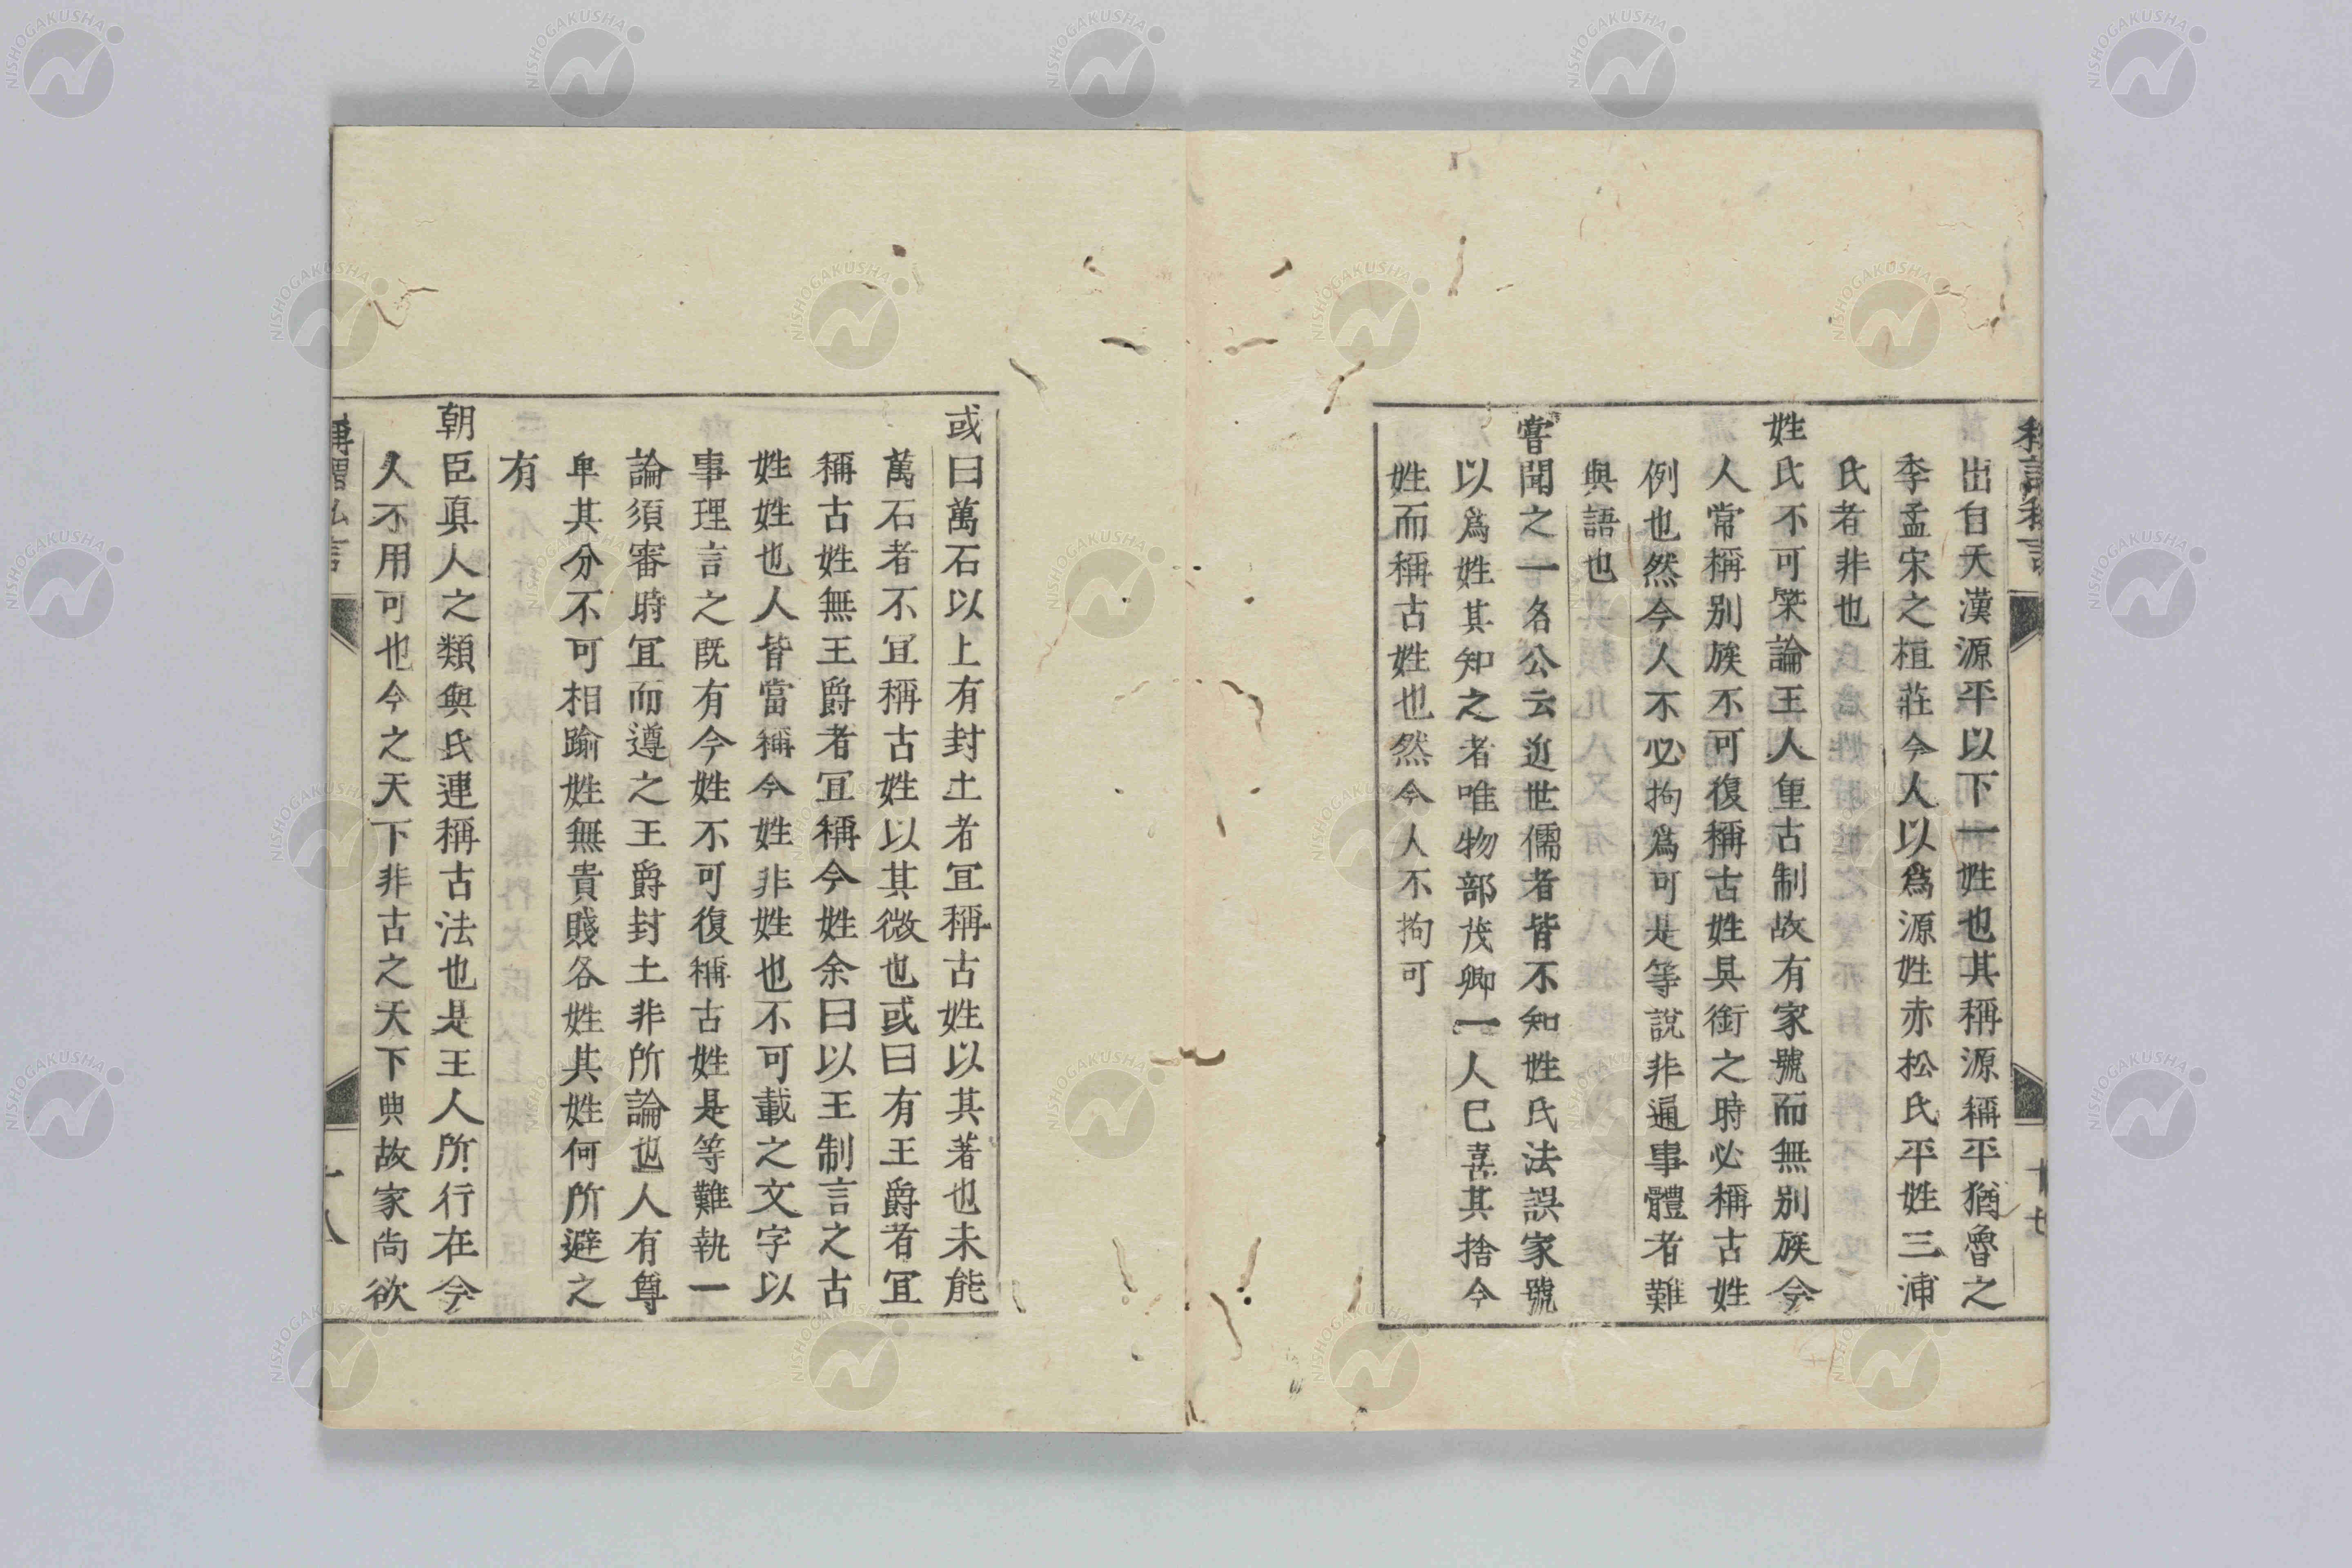 出自天漢源平以下一姓也其稱源稱平猶魯之
季孟宋之桓莊今人以爲源姓赤松氏平姓三浦
氏者非也
姓氏不可槩論王人重古制故有家號而無別族今
人常稱別族不可復稱古姓具銜之時必稱古姓
例也然今人不必拘爲可是等說非通事體者難
與語也
嘗聞之一名公云近世儒者皆不知姓氏法誤家號
以爲姓其知之者唯物部茂卿一人已喜其捨今
姓而稱古姓也然今人不拘可
或曰萬石以上有封土者冝稱古姓以其著也未能
萬石者不冝稱古姓以其微也或曰有王爵者冝
稱古姓無王爵者冝稱今姓余曰以王制言之古
姓姓也人皆當稱今姓非姓也不可載之文字以
事理言之既有今姓不可復稱古姓是等難執一
論須審時冝而遵之王爵封土非所論也人有尊
卑其分不可相踰姓無貴賤各姓其姓何所避之
有
朝臣眞人之類與氏連稱古法也是王人所行在今
人不用可也今之天下非古之天下典故家尚欲
十八
NISHOGAKUSHA